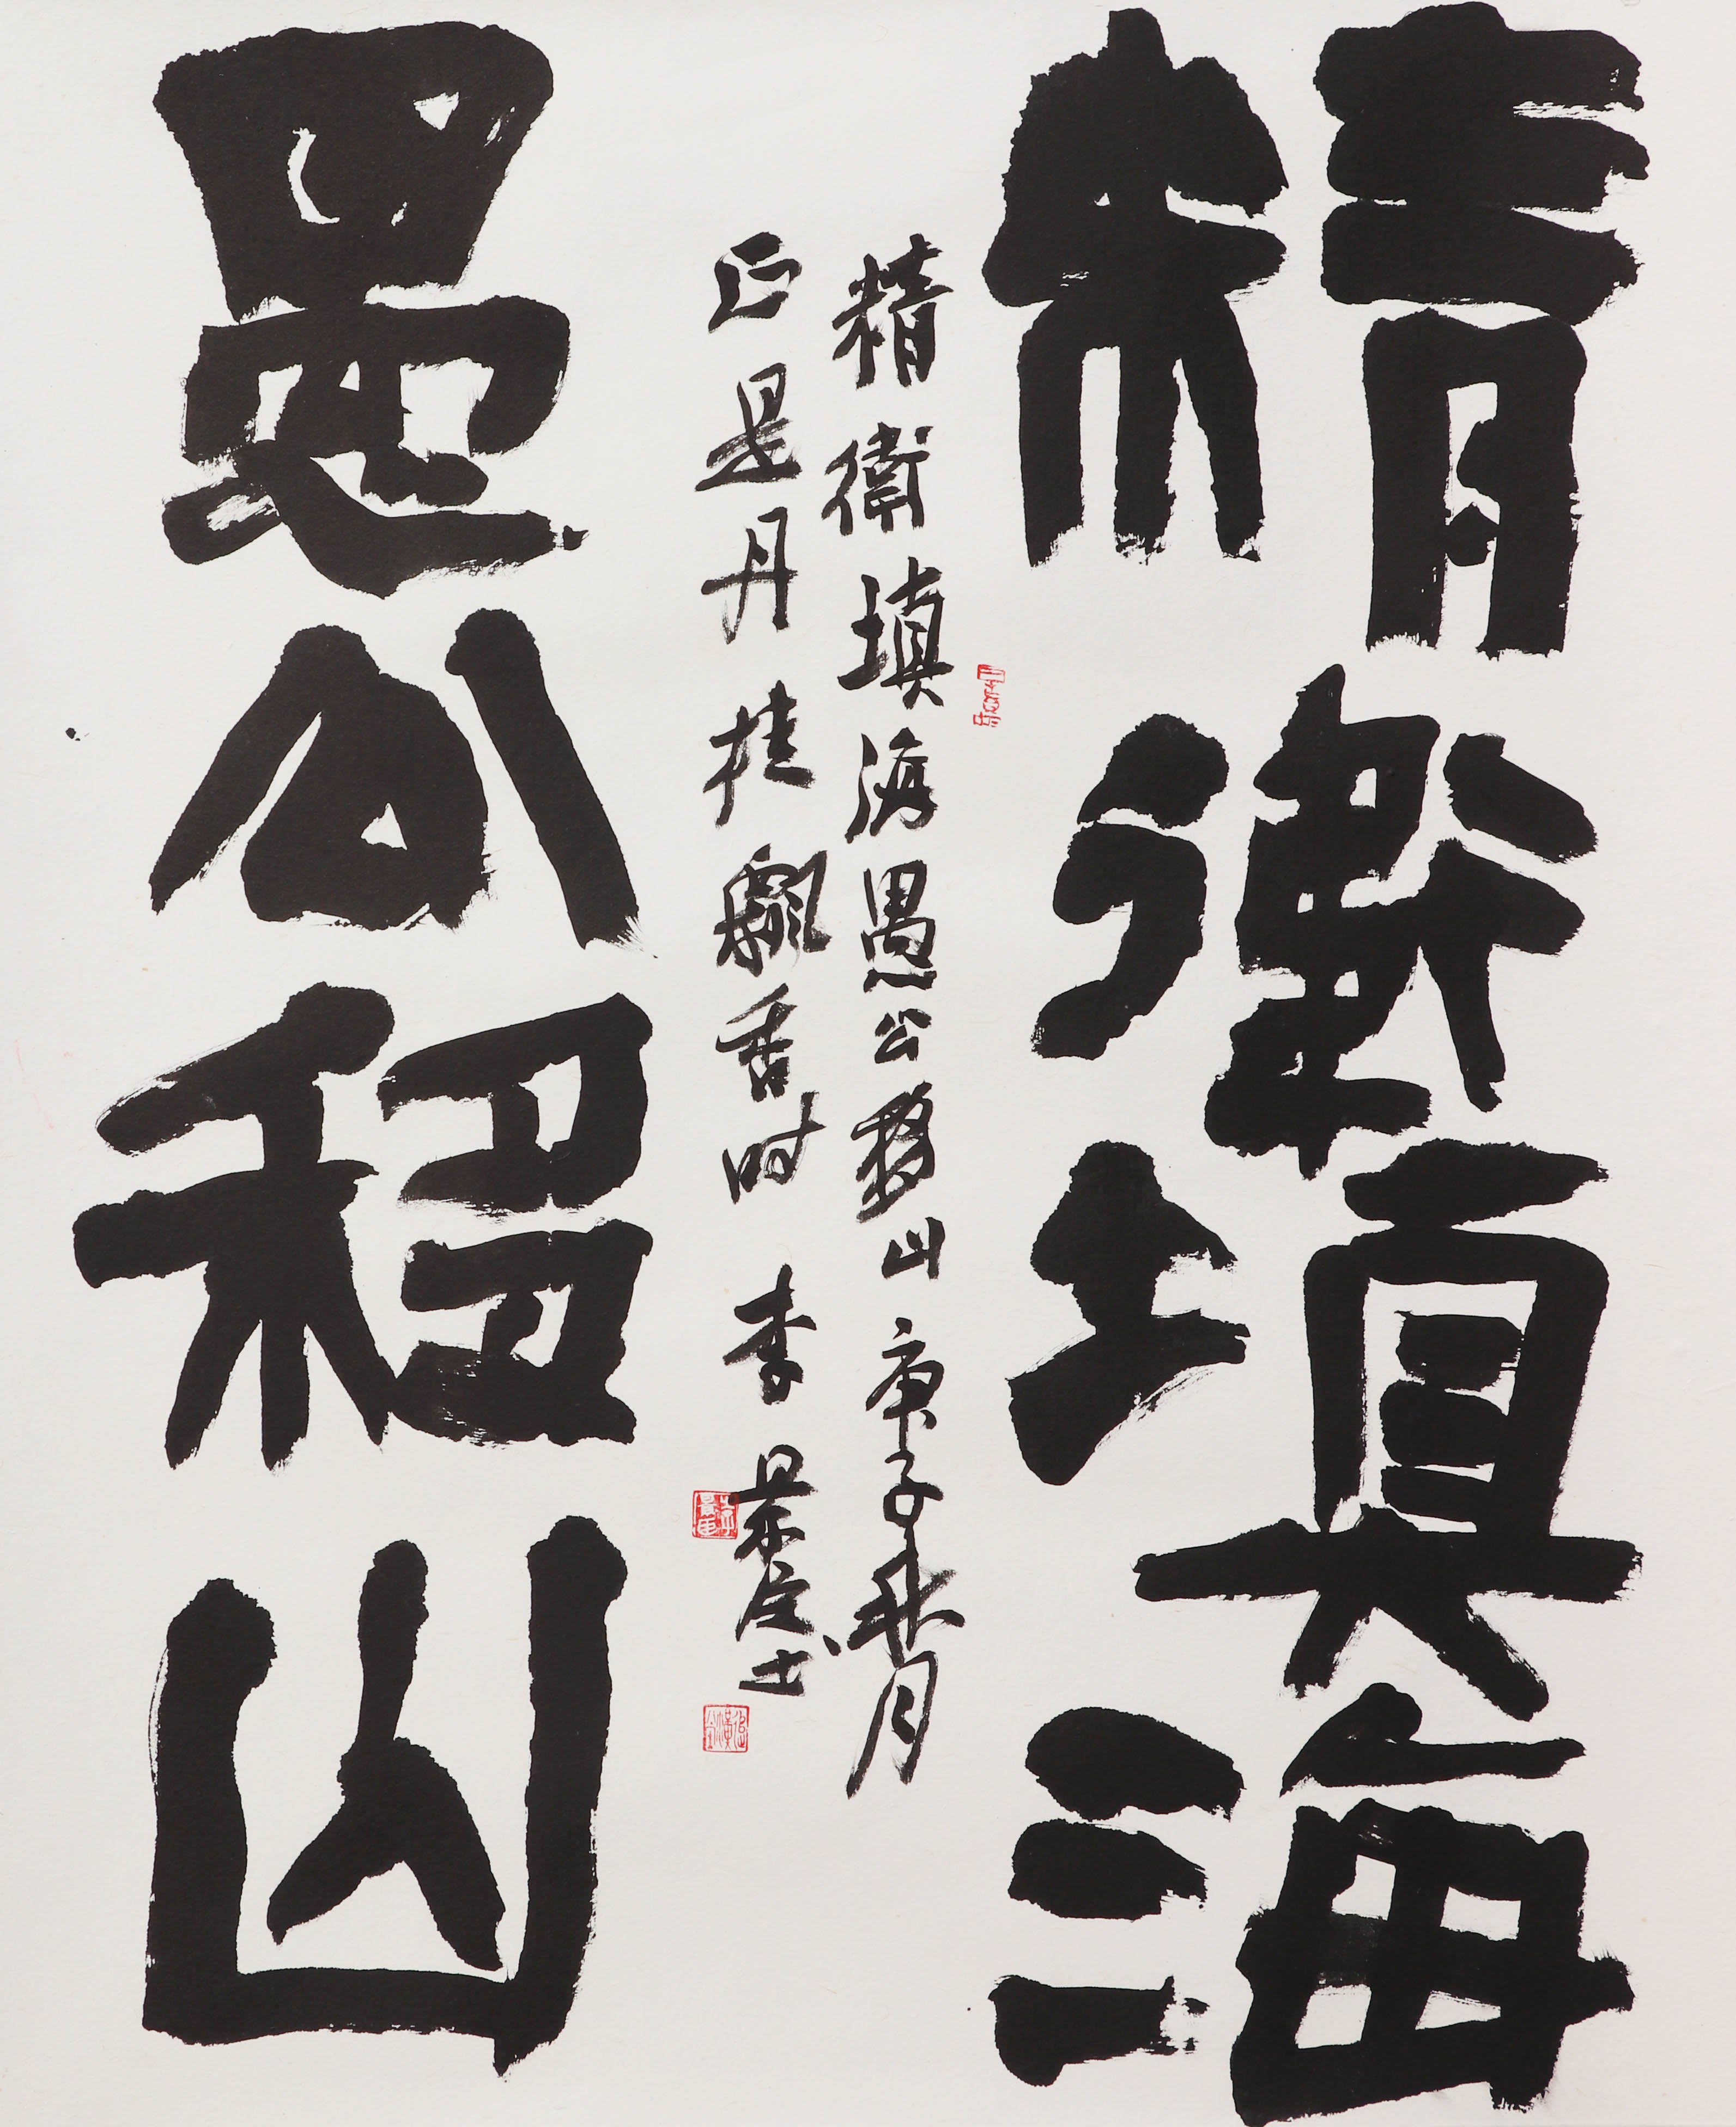 精衛填海
精衛填海愚公移山庚子秋月
正是丹桂飄香時李景
愚公移山